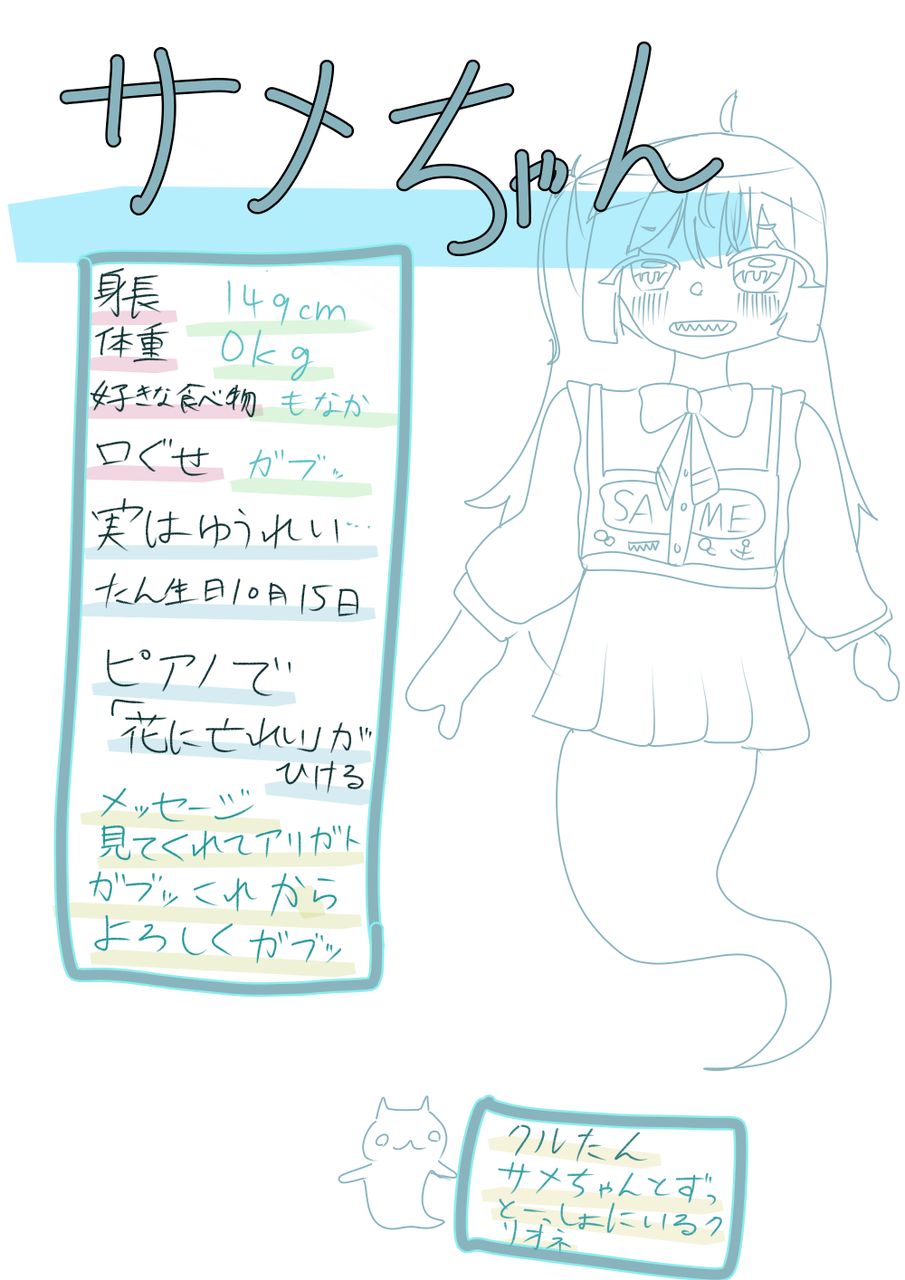 サメちゃん
身長 149cm
体重 0kg
好きな食べ物 もなか
口ぐせ ガブッ
実はゆうれい…
たん生日10月15日
ピアノで
「花に亡れい」が
ひける
メッセージ
見てくれてアリガト
ガブッこれから
よろしくガブッ
SA ME
クルたん
サメちゃんとずっ
とーっしょにいるク
リオネ